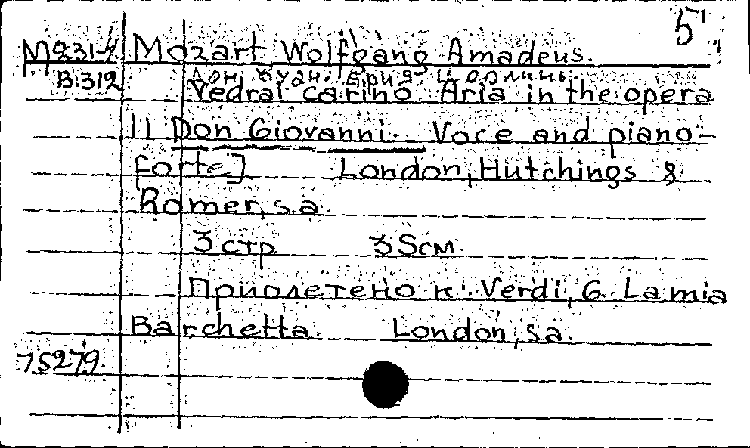 5
М231-4 Mozart Wolfgang Amadeus.
В.312 Дон Жуан. Ария Церлины.
Vedrai carino Aria in the opera
|| Don Giovanni. Voce and piano-
forte] London, Hutchings &
Romer, s.a.
3 стр 35см.
Приплетено к: Verdi, G. La mia
Barchetta. London, s.a.
75279.